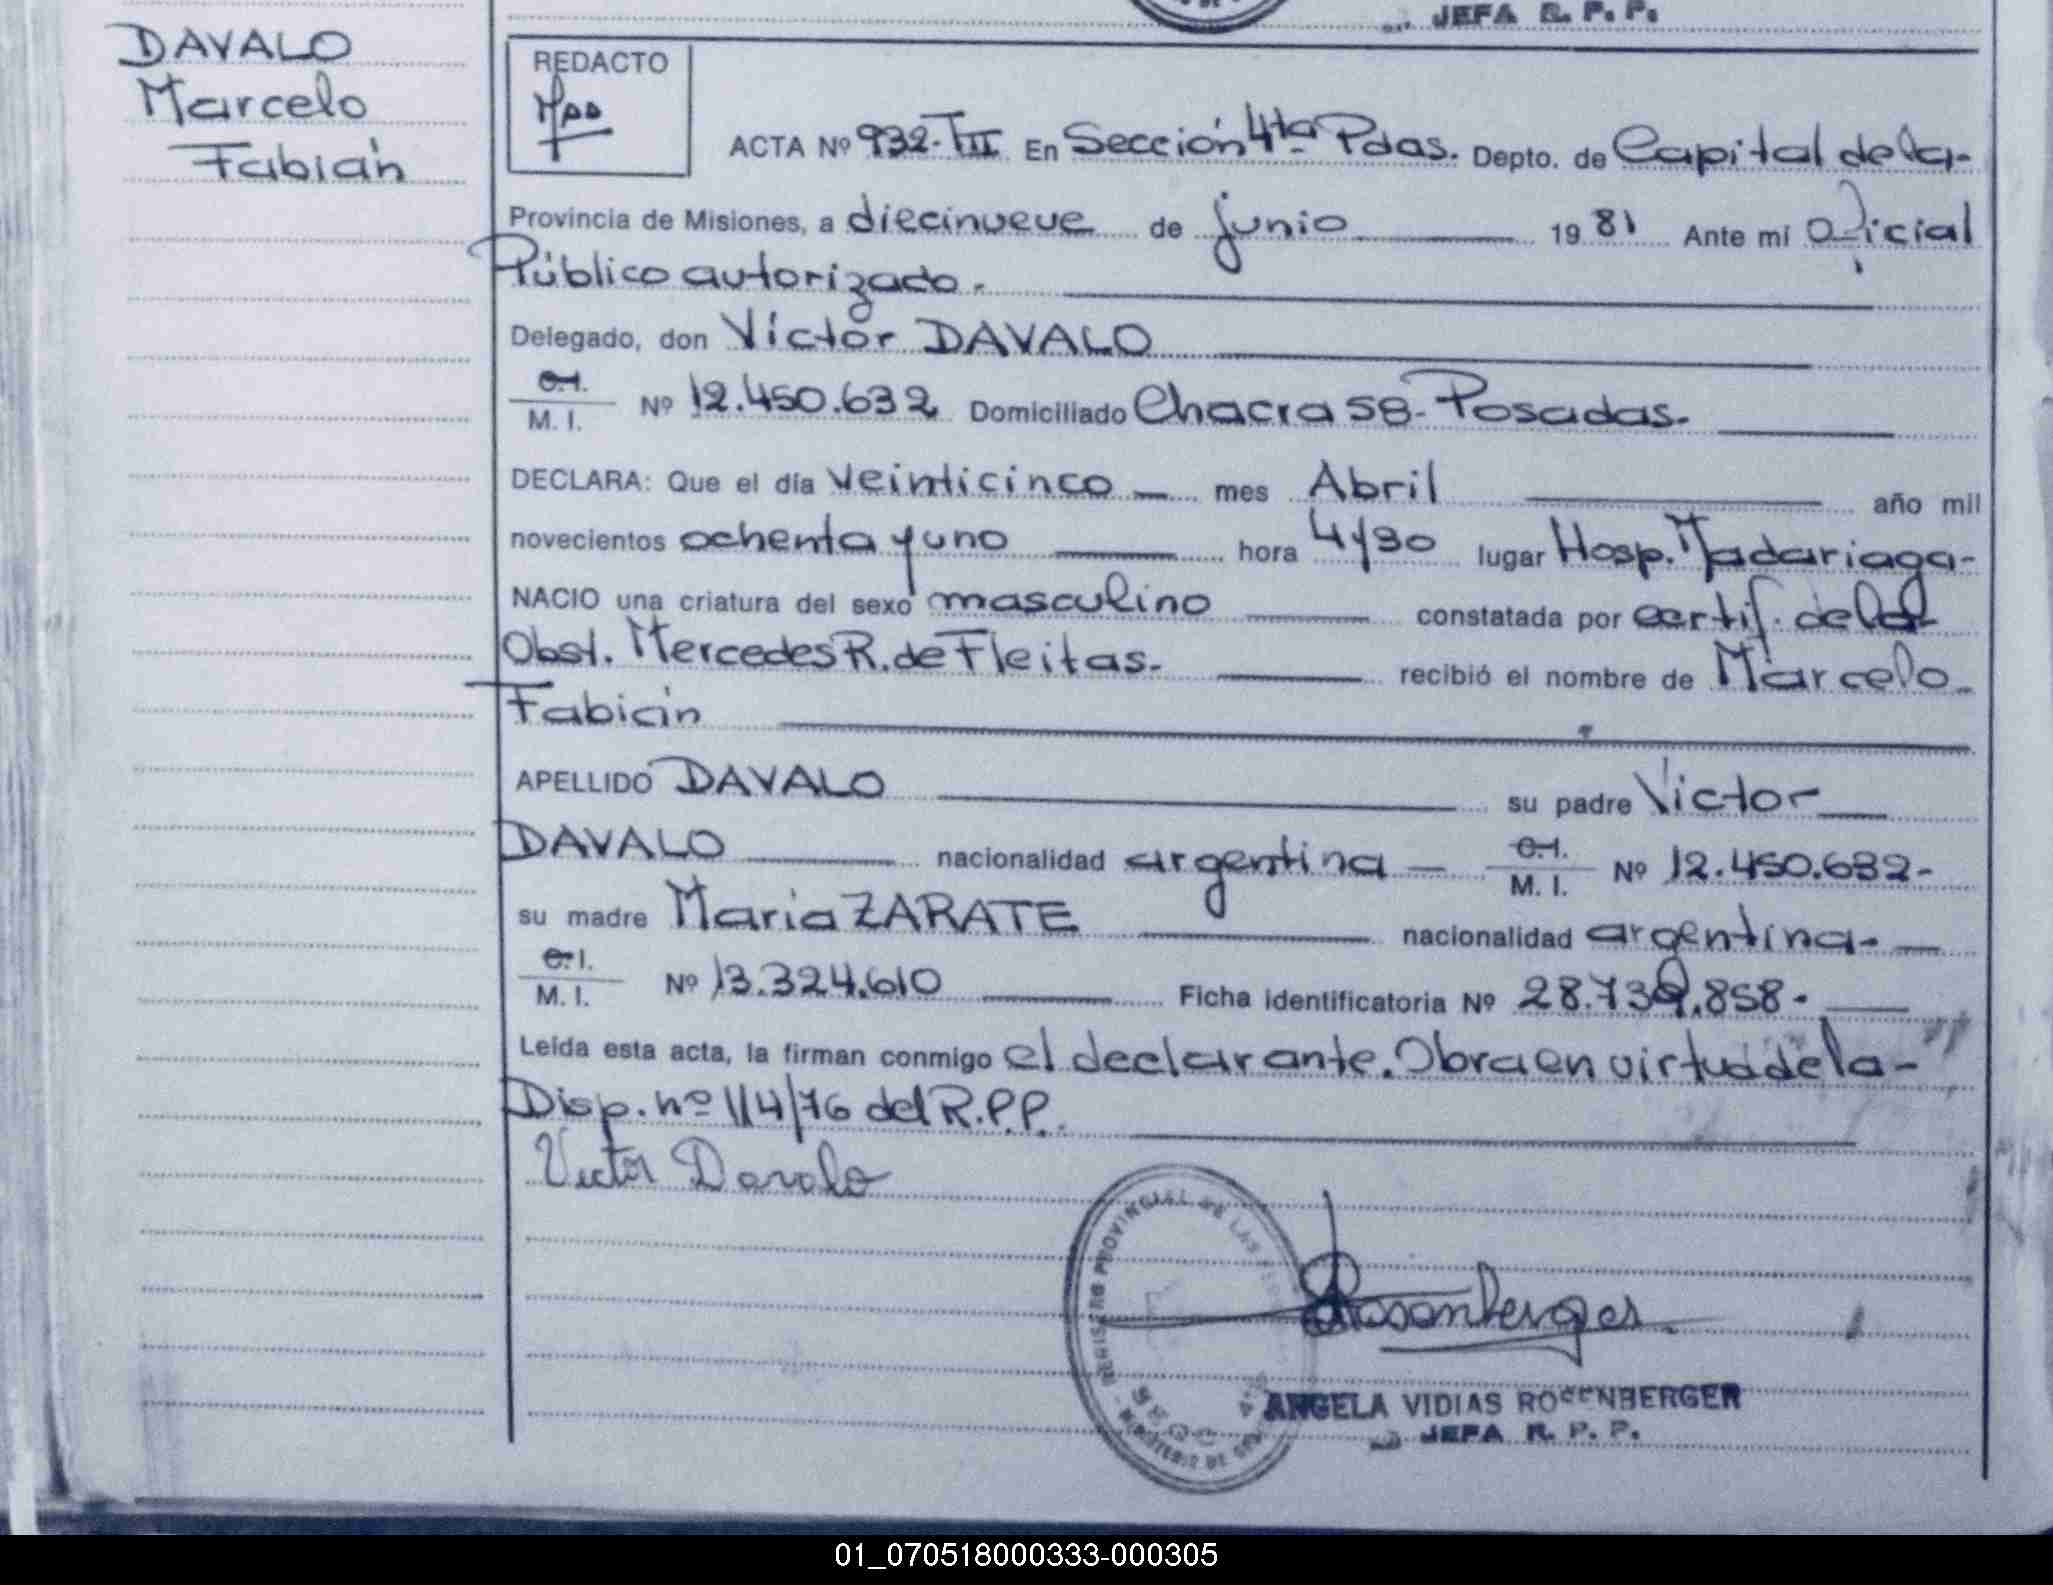 JEFA R. P. P.
DAVALO
Marcelo
Fabián
REDACTO
ACTA Nº 932-TIII En Sección 4ta Pdas. Depto. de Capital de la-
Provincia de Misiones, a diecinueve de junio 1981 Ante mi Oficial
Público autorizado.
Delegado, don Víctor DAVALO
C.I.
M. I. Nº 12.450.632 Domiciliado Chacra 58- Posadas.
DECLARA: Que el día veinticinco mes Abril año mil
novecientos ochenta y uno hora 4y30 lugar Hosp. Madariaga-
NACIO una criatura del sexo masculino constatada por certif. de la
Obst. Mercedes R. de Fleitas. recibió el nombre de Marcelo
Fabián
APELLIDO DAVALO su padre Victor
DAVALO nacionalidad argentina C.I.
M. I. Nº 12.450.632-
su madre Maria ZARATE nacionalidad argentina-
C.I.
M. I. Nº 13.324.610 Ficha identificatoria Nº 28.739.858-
Leída esta acta, la firman conmigo el declarante. Obra en virtud de la-
Disp. nº 114/76 del R.P.P.
Victor Davalo
REGISTRO PROVINCIAL DE LAS
Rosenberger
ANGELA VIDIAS ROSENBERGER
JEFA R. P. P.
01_070518000333-000305